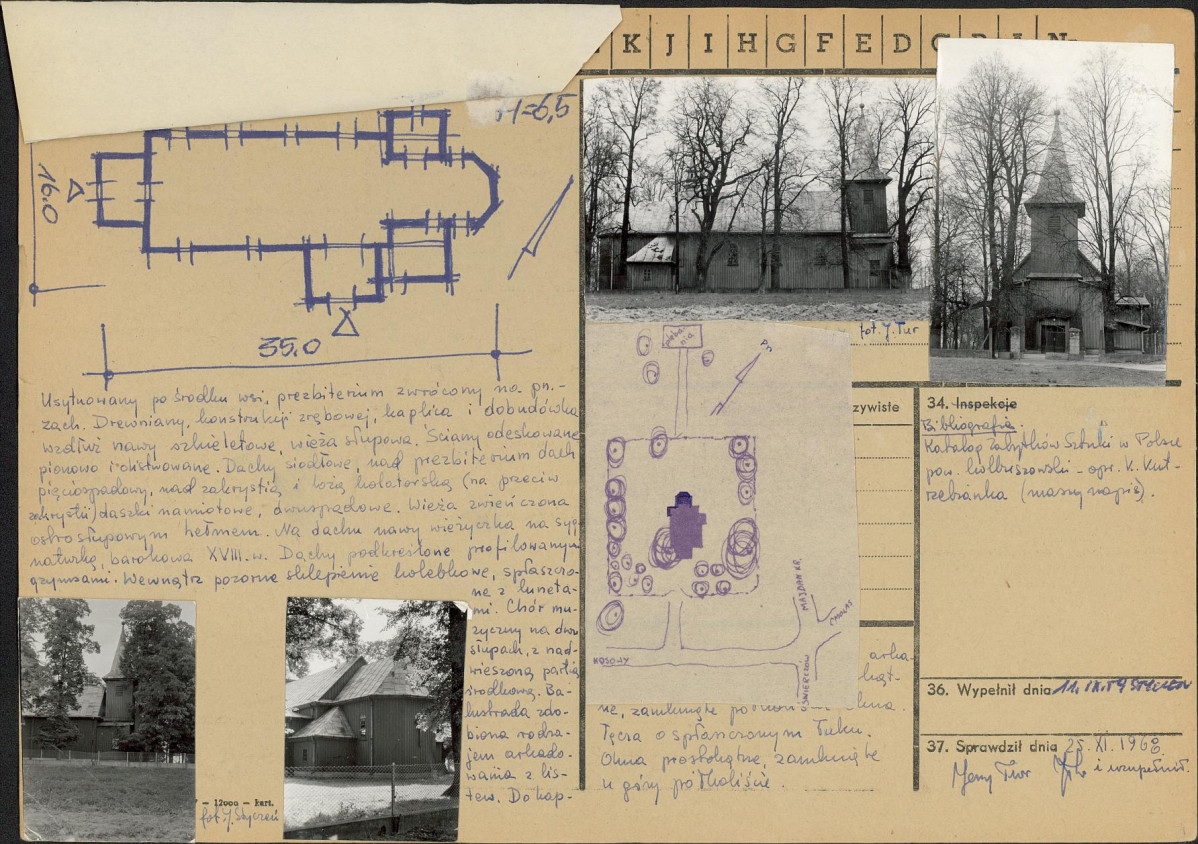 K J I H G F E D C B A N-
H=6,5
16.0
35.0
Usytuowany pośrodku wsi, prezbiterium zwrócony na pn.-
zach. Drewniany, konstrukcji zrębowej, kaplica i dobudówka
wzdłuż nawy szkieletowe, wieża słupowa. Ściany odeskowane
pionowo i olistwowane. Dachy siodłowe, nad prezbiterium dach
pięciospadowy, nad zakrystią i lożą kolatorską (na przeciw
zakrystii) daszki namiotowe, dwuspadowe. Wieża zwieńczona
ostrosłupowym hełmem. Na dachu nawy wieżyczka na syg
naturkę, barokowa XVIII w. Dachy podkreślone profilowanym
gzymsami. Wewnątrz pozorne sklepienie kolebkowe, spłaszczo-
ne z luneta-
mi. Chór mu-
zyczny na dwu
słupach, z nad-
wieszoną partią
środkową. Ba-
lustrada zdo-
biona rodza-
jem arkado-
wania z lis-
tew. Do kap-
- 12000 - kart.
fot. J. Styczeń
fot. J. Tur
pleba-
nia
Pn
MAJDAN KR.
CMOLAS
KOSOWY
ŚWIERCZÓW
arka-
kąt-
ne, zamknięte
Tęcza o spłaszczonym łuku.
Okna prostokątne, zamknięte
u góry półkoliście.
zywiste
34. Inspekcje
Bibliografia
Katalog Zabytków Sztuki w Polsce
pow. kolbuszowski - opr. K. Kut-
rzebianka (masznopis).
36. Wypełnił dnia 11. IX. 59 STYCZEŃ
37. Sprawdził dnia 25. XI. 1968.
Jerzy Tur i uzupełnił.